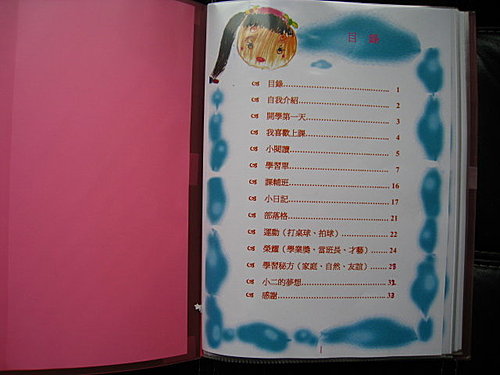 目錄
目錄 1
自我介紹 2
開學第一天 3
我喜歡上課 4
小閱讀 5
學習單 7
課輔班 16
小日記 17
部落格 21
運動（打桌球、拍球） 22
榮耀（學業獎、當班長、才藝） 24
學習秘方（家庭、自然、友誼）
小二的夢想
感謝
1